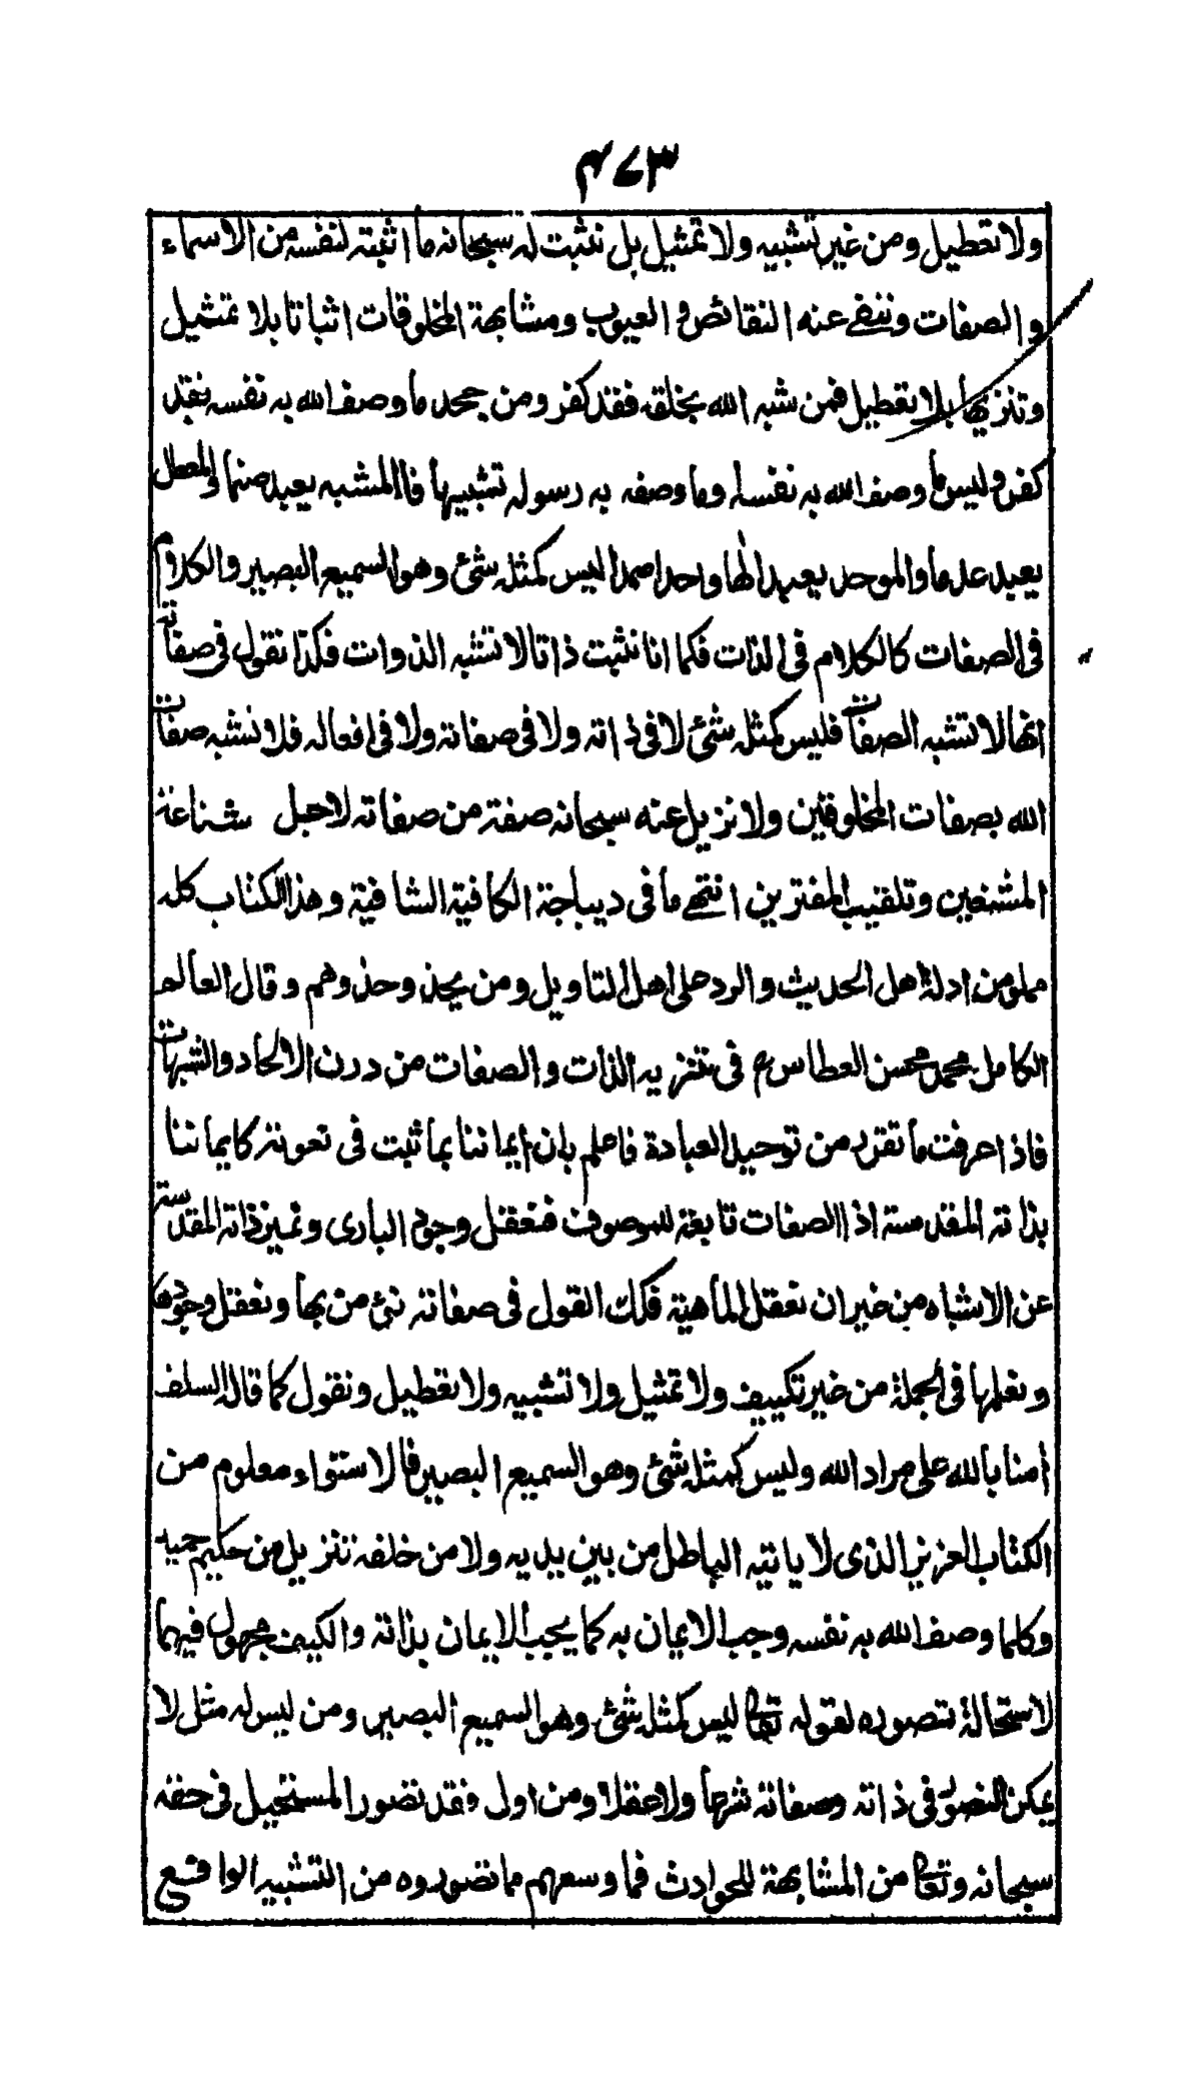 ٤٧٣
ولا تعطيل ومن غير تشبيه ولا تمثيل بل نثبت له سبحانه ما اثبته لنفسه من الاسماء
و الصفات وننفى عنه النقائص و العيوب ومشابهة المخلوقات اثباتا بلا تمثيل
وتنزيها بلا تعطيل فمن شبه الله بخلقه فقد كفر ومن جحد ما وصف الله به نفسه فقد
كفر وليس ما وصف الله به نفسه وما وصفه به رسوله تشبيها فالمشبه يعبد صنما والمعطل
يعبد عدما والموحد يعبد الها واحدا صمدا ليس كمثله شئ وهو السميع البصير والكلام
فى الصفات كالكلام فى الذات فكما انا نثبت ذاتا لا تشبه الذوات فكذا نقول فى صفاته
انها لا تشبه الصفات فليس كمثله شئ لا فى ذاته ولا فى صفاته ولا فى افعاله فلا نشبه صفات
الله بصفات المخلوقين ولا نزيل عنه سبحانه صفة من صفاته لاجل شناعة
المشنعين وتلقيب المفترين انتهى ما فى ديباجة الكافية الشافية وهذا الكتاب كله
مملو من ادلة اهل الحديث والرد على اهل التاويل ومن يحذو حذوهم وقال العالم
الكامل محمد محسن العطاس فى تنزيه الذات و الصفات من درن الالحاد والشبهات
فاذا عرفت ما تقرر من توحيد العبادة فاعلم بان ايماننا بما ثبت فى نعوته كايماننا
بذاته المقدسة اذ الصفات تابعة للموصوف فنعقل وجود البارى ونميز ذاته المقدسة
عن الاشباه من غير ان نعقل الماهية فكك القول فى صفاته نؤمن بها ونعقل وجودها
ونعلمها فى الجملة من غير تكييف ولا تمثيل ولا تشبيه ولا تعطيل ونقول كما قال السلف
أمنا بالله على مراد الله وليس كمثله شئ وهو السميع البصير فالاستواء معلوم من
الكتاب العزيز الذى لا ياتيه الباطل من بين يديه ولا من خلفه تنزيل من حكيم حميد
وكلما وصف الله به نفسه وجب الايمان به كما يجب الايمان بذاته والكيف مجهول فيهما
لاستحالة تصوره لقوله تعالى ليس كمثله شئ وهو السميع البصير ومن ليس له مثل لا
يمكن التصور فى ذاته وصفاته شرعا ولا عقلا ومن اول فقد تصور المستحيل فى حقه
سبحانه وتعالى من المشابهة للحوادث فما وسعهم مما تصوروه من التشبيه الواقع